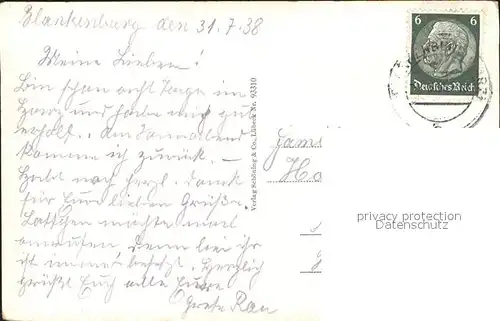 Blankenburg den 31.7.38
Meine Lieben!
Bin schon acht Tage im
Harz und habe mich gut
erholt. Am Sonnabend
komme ich zurück. –
Habt noch herzl. Dank
für Eure lieben Grüße.
möchte mal
anrufen denn bei ihr
ist immer besetzt. Herzlich
grüßt Euch alle Eure
Grete Rau
Verlag Schöning & Co., Lübeck Nr. 93310
6 6
Deutsches Reich
privacy protection
Datenschutz